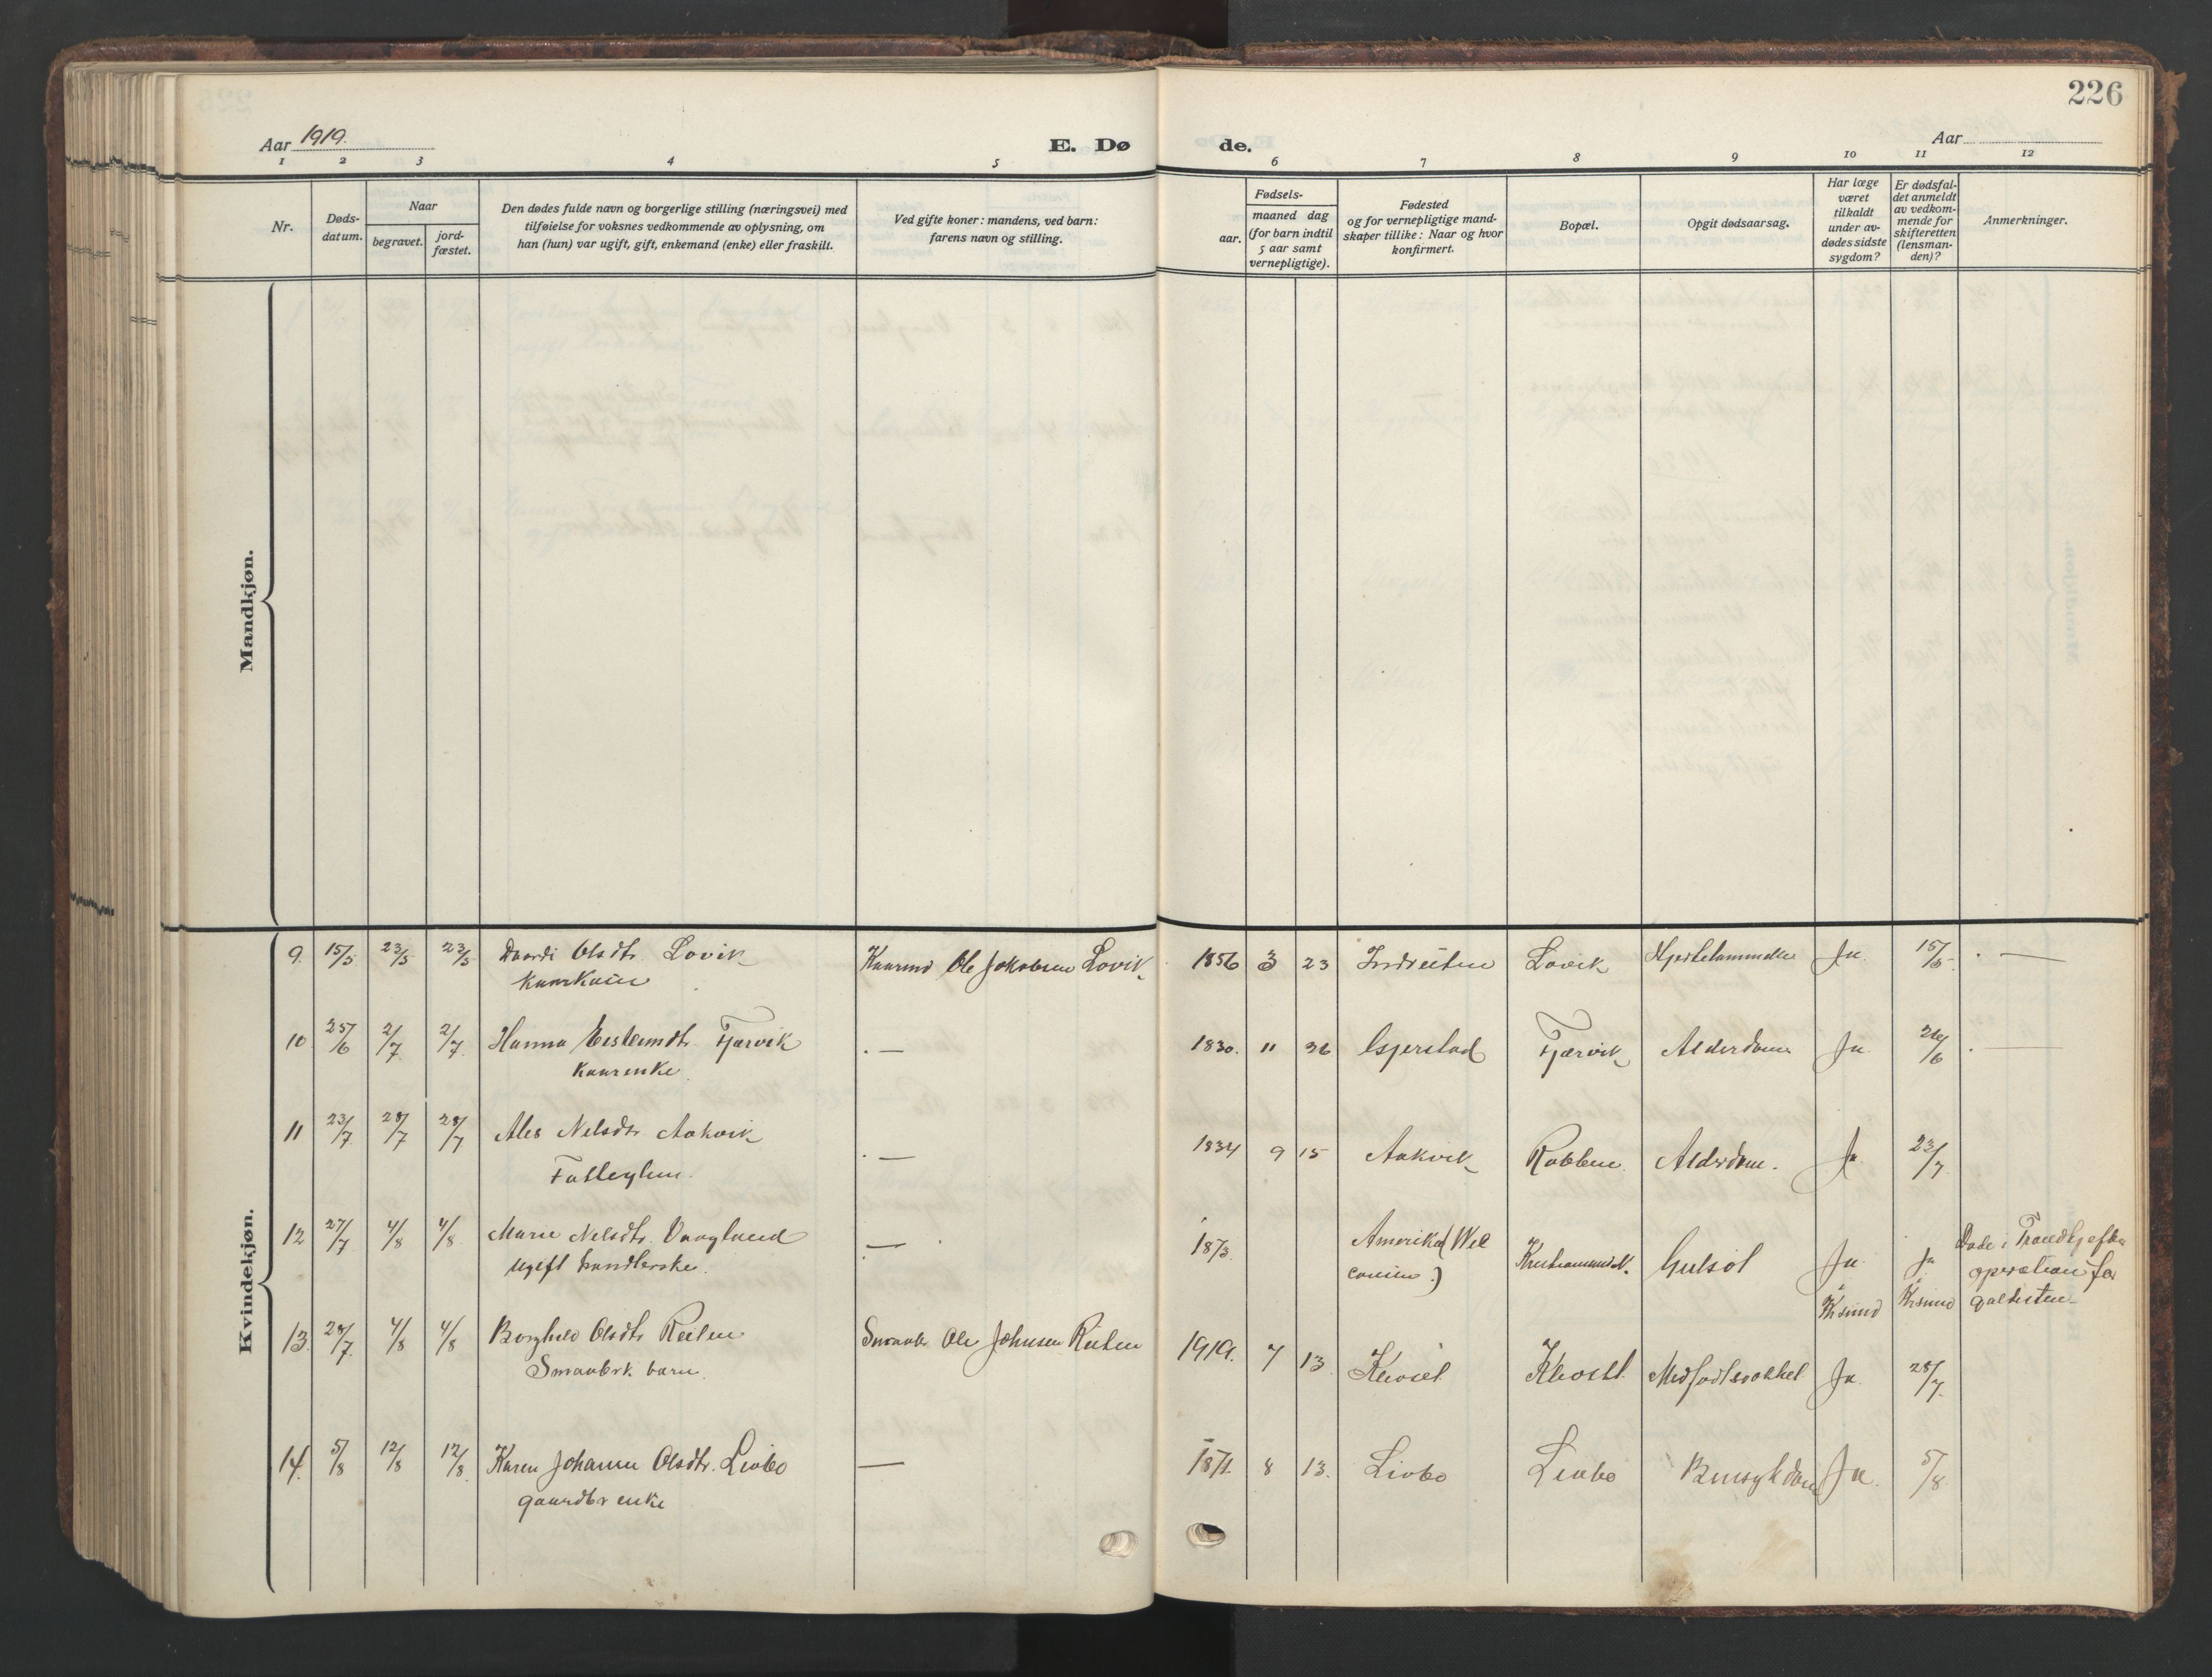 226
Aar 1919.
E. Døde.
Aar
1 2 3 4 5 6 7 8 9 10 11 12
Nr.
Døds-
datum.
Naar
begravet.
jord-
fæstet.
Den dødes fulde navn og borgerlige stilling (næringsvei) med
tilføielse for voksnes vedkommende av oplysning, om
han (hun) var ugift, gift, enkemand (enke) eller fraskilt.
Ved gifte koner: mandens, ved barn:
farens navn og stilling.
Fødsels-
aar.
maaned dag
(for barn indtil
5 aar samt
vernepligtige).
Fødested
og for vernepligtige mand-
skaper tillike: Naar og hvor
konfirmert.
Bopæl.
Opgit dødsaarsag.
Har læge
været
tilkaldt
under av-
dødes sidste
sygdom?
Er dødsfal-
det anmeldt
av vedkom-
mende for
skifteretten
(lensman-
den)?
Anmerkninger.
Mandkjøn.
Kvindekjøn.
9. 15/5 23/5 23/5 Olsdtr. Lovik Kaarmd Ole Jakobsen Lovik 1856 3 23 Lovik Ja. 15/5. —
kaarkone
10 25/6 2/7 2/7 Hanna Fjærvik — 1830. 11 Fjærvik Alderdom Ja. 26/6 —
kaarenke
11 23/7 28/7 28/7 Ales Nelsdtr Aakvik — 1834 9 15 Aakvik Robben Alderdom. Ja 23/7
Fattiglem.
12 27/7 4/8 4/8 Marie Nelsdtr. Vaagland — 1873. Amerika (Wis
consin.) Kristiansund N. Gulsot Ja. Ja Døde i Trondhj efter
ugift handlerske. Krsund Krsund operation for
galdesten.
13. 28/7 4/8 4/8 Borghild Olsdtr Reiten Smaabr Ole Johnsen Reiten 1919. 7 13 Medfødt svakhet Ja. 28/7
Smaabrk. barn.
14. 5/8 12/8 12/8 Karen Johanne Olsdtr. Livbo — 1871. 8 13. Livbo Livbo Ja. 5/8
gaardbr enke